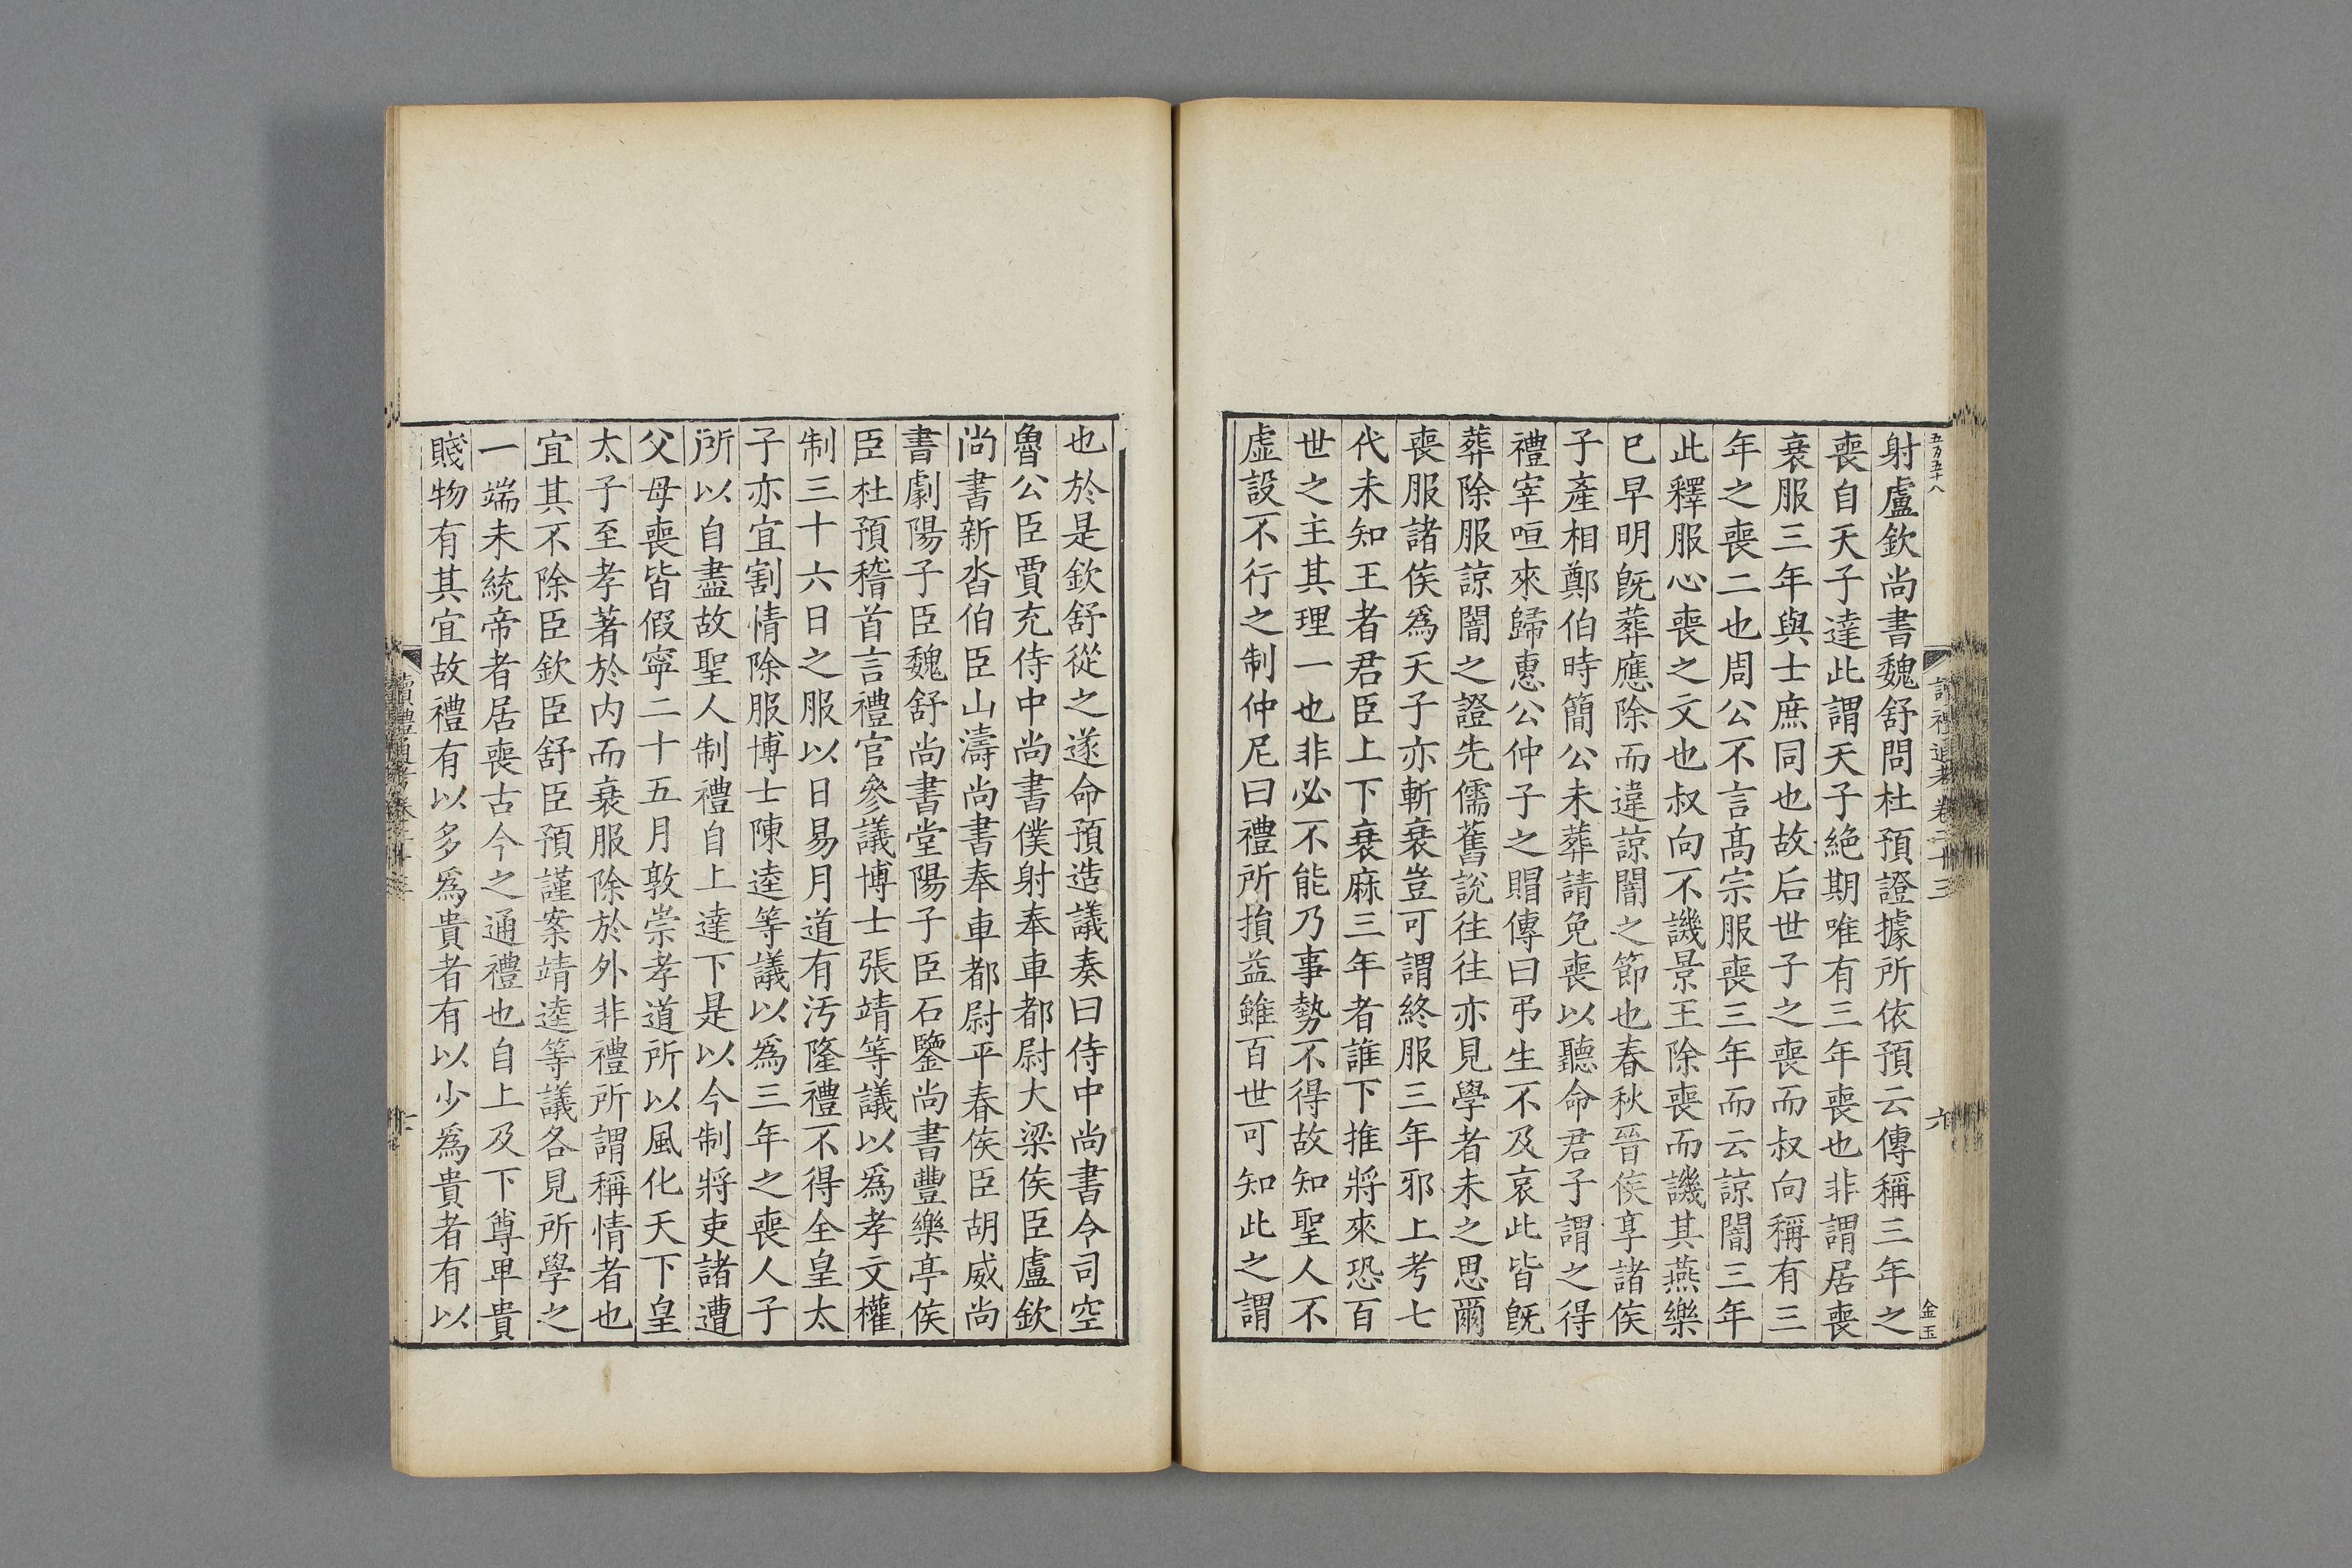 五万五十八
讀禮通考卷二十三
六
金玉
射盧欽尚書魏舒問杜預證據所依預云傳稱三年之
喪自天子達此謂天子絶期唯有三年喪也非謂居喪
衰服三年與士庶同也故后世子之喪而叔向稱有三
年之喪二也周公不言髙宗服喪三年而云諒闇三年
此釋服心喪之文也叔向不譏景王除喪而譏其燕樂
巳早明旣葬應除而違諒闇之節也春秋晉侯享諸侯
子產相鄭伯時簡公未葬請免喪以聽命君子謂之得
禮宰咺來歸惠公仲子之賵傳曰弔生不及哀此皆旣
葬除服諒闇之證先儒舊說往往亦見學者未之思爾
喪服諸侯爲天子亦斬衰豈可謂終服三年邪上考七
代未知王者君臣上下衰麻三年者誰下推將來恐百
世之主其理一也非必不能乃事勢不得故知聖人不
虚設不行之制仲尼曰禮所損益雖百世可知此之謂
也於是欽舒從之遂命預造議奏曰侍中尚書令司空
魯公臣賈充侍中尚書僕射奉車都尉大梁侯臣盧欽
尚書新沓伯臣山濤尚書奉車都尉平春侯臣胡威尚
書劇陽子臣魏舒尚書堂陽子臣石鑒尚書豐樂亭侯
臣杜預稽首言禮官參議博士張靖等議以爲孝文權
制三十六日之服以日易月道有汚隆禮不得全皇太
子亦宜割情除服博士陳逵等議以爲三年之喪人子
所以自盡故聖人制禮自上達下是以今制將吏諸遭
父母喪皆假寧二十五月敦崇孝道所以風化天下皇
太子至孝著於内而衰服除於外非禮所謂稱情者也
宜其不除臣欽臣舒臣預謹案靖逵等議各見所學之
一端未統帝者居喪古今之通禮也自上及下尊卑貴
賤物有其宜故禮有以多爲貴者有以少爲貴者有以
讀禮通考卷二十三